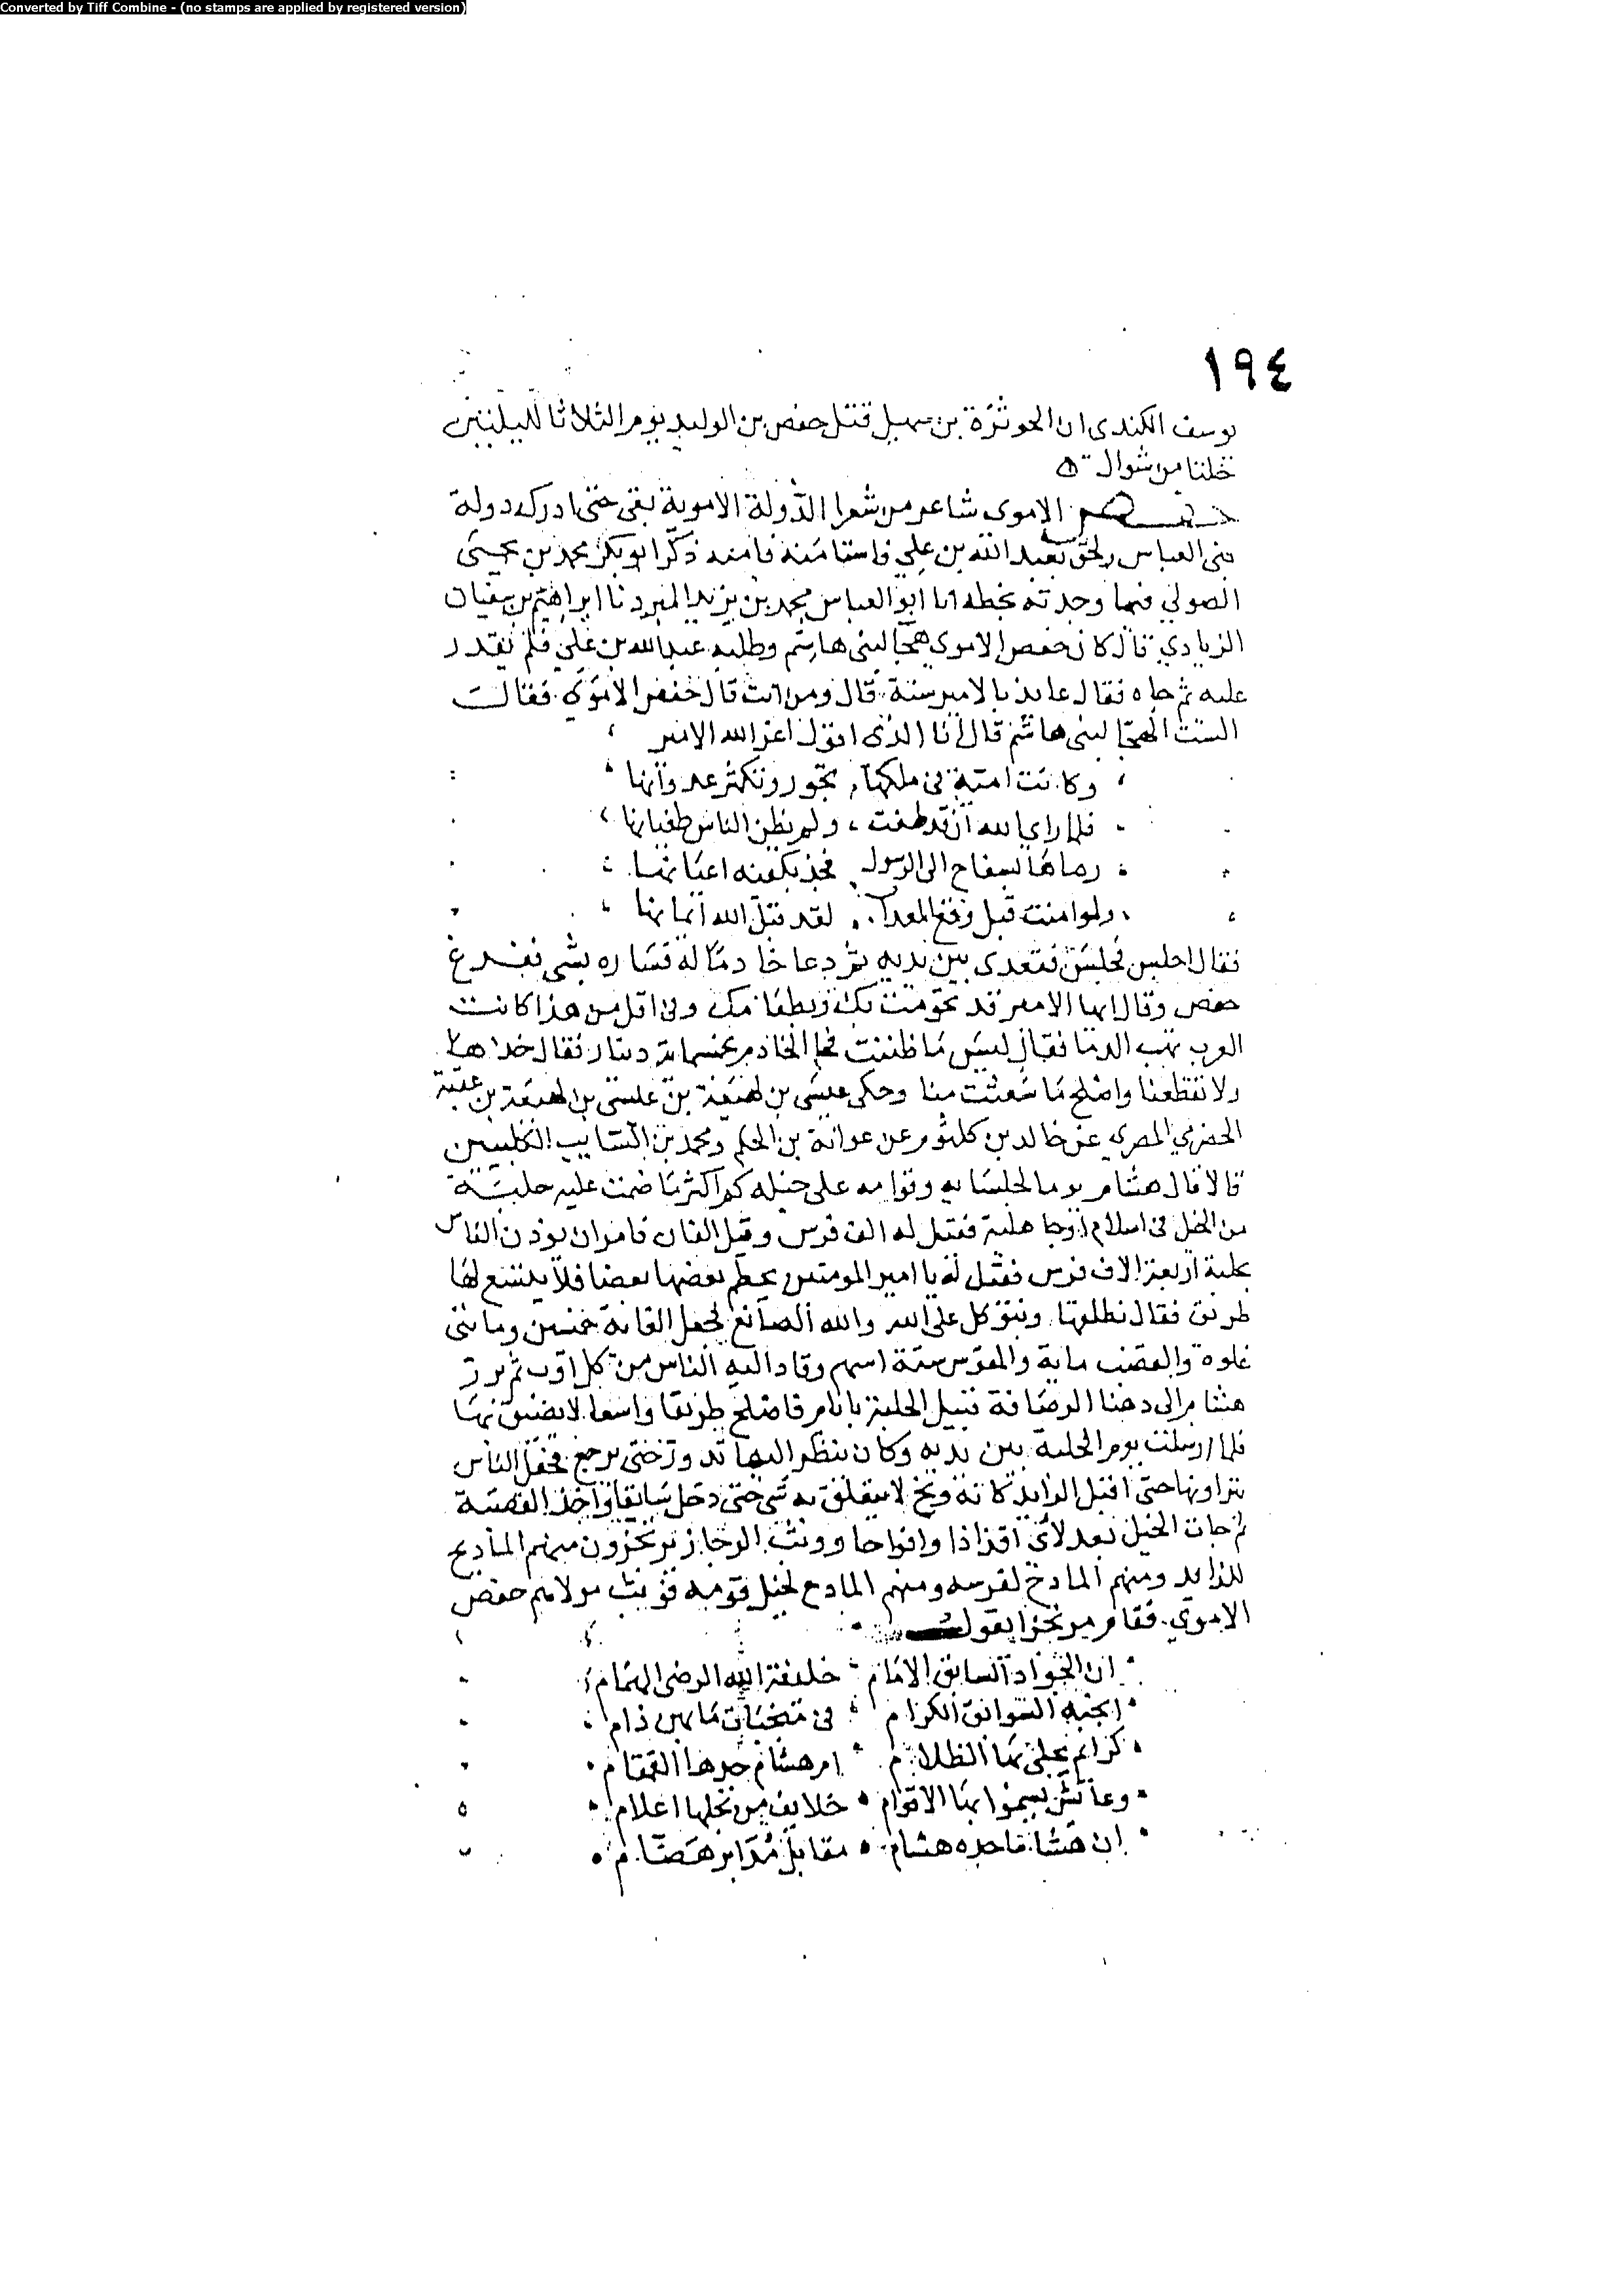 Converted by Tiff Combine - (no stamps are applied by registered version)
١٩٤
يوسف الكندى ان الحوثرة بن سهيل قتل حفص بن الوليد يوم الثلاثا لليلتين
خلتا من شوال
حفص الاموى شاعر من شعرا الدولة الاموية بقى حتى ادرك دولة
بنى العباس ولحق بعبد الله بن علي فاستامنه فامنه ذكر ابو بكر محمد بن يحيى
الصولي فيما وجدته بخطه انا ابو العباس محمد بن يزيد المبرد نا ابراهيم بن سفيان
الزيادي قال كان حفص الاموي هجا لبنى هاشم وطلبه عبد الله بن علي فلم يقدر
عليه ثم جاه فقال عايذ بالامير منه قال ومن انت قال حفص الاموي فقالت
الست الهجا لبنى هاشم قال انا الذى اقول اعز الله الامير
وكانت امية فى ملكها تجور وتكثر عدوانها
فلما راى الله ان قد طغت ولم يطق الناس طغيانها
رماها بسفاح ال الرسول فجذ بكفيه اعيانها
ولو امنت قبل وقع العذاب لقد قبل الله ايمانها
فقال اجلس فجلس فتغدى بين يديه ثم دعا خادما له فساره بشى ففزع
حفص وقال ايها الامير قد تحرمت بك وبطعامك وفى اقل من هذا كانت
العرب تهب الدما فقال ليس ما ظننت فجا الخادم بخمسماية دينار فقال خذها
ولا تقطعنا واصلح ما شعثت منا وحكى عيسى بن لهيعة بن عيسى بن لهيعة بن عقبة
الحضرمي المصري عن خالد بن كلثوم عن عوانة بن الحكم ومحمد بن السايب الكلبيين
قالا قال هشام يوما لجلسايه وقوامه على خيله كم اكثر ما ضمت عليه حلبة
من الخيل فى اسلام او جاهلية فقيل له الف فرس وقيل الفان فامر ان يوذن الناس
بحلبة اربعة الاف فرس فقيل له يا امير المومنين يحطم بعضها بعضا فلا يتسع لها
طريق فقال نطلقها ونتوكل على الله والله الصانع فجعل الغاية خمسين ومايتى
غلوة والقصب ماية والمقوس ستة اسهم وقاد اليه الناس من كل اوب ثم برز
هشام الى دهنا الرصافة قبيل الحلبة بايام فاصلح طريقا واسعا لا يضيق بها
فلما ارسلت يوم الحلبة بين يديه وكان ينظر اليها تدور حتى ترجع فجعل الناس
يتراونها حتى اقبل الزايد كانه ريح لا يتعلق به شى حتى دخل سابقا واخذ القصبة
ثم جات الخيل بعد لاى افذاذا وافواجا ووثب الرجاز يرتجزون منهم المادح
للزايد ومنهم المادح لفرسه ومنهم المادح لخيل قومه فوثب مولاهم حفص
الاموي فقام مرتجزا يقول
ان الجواد السابق الامام خليفة الله الرضى الهمام
انجبه السوابق الكرام فى منجبات ما بهن ذام
كرايم يجلى بها الظلام ام هشام جدها القمقام
وعايش يسموا بها الاقوام خلايف من نجلها اعلام
ان هشاما جده هشام مقابل مدابر هضام